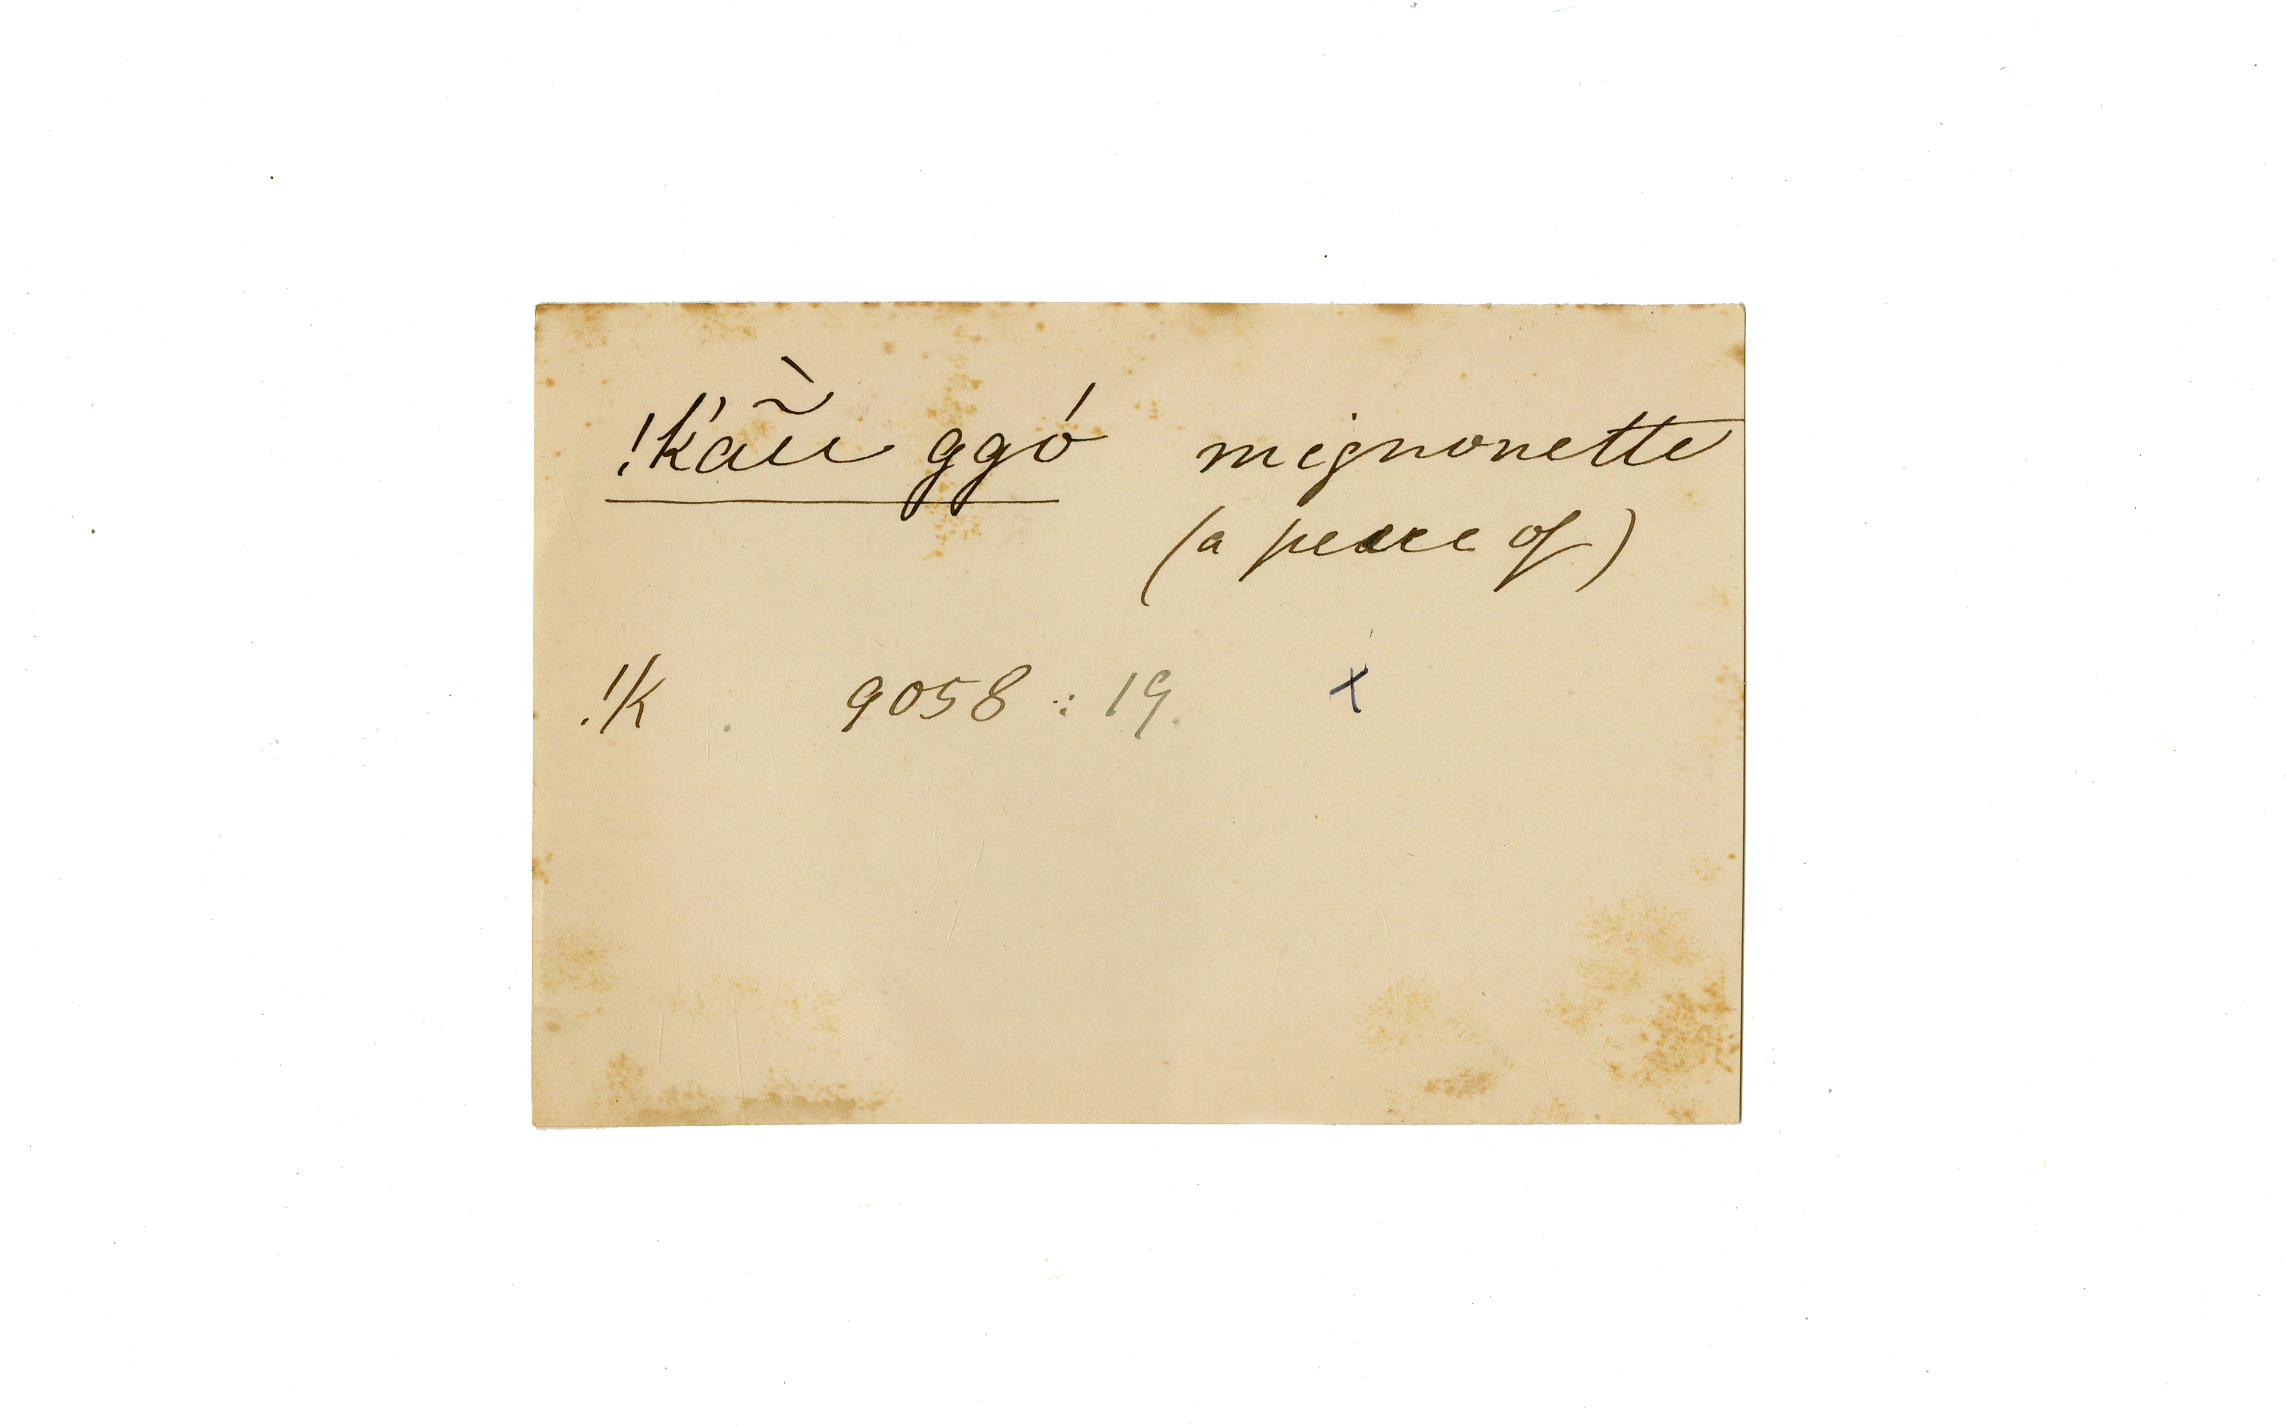 !k'aũ̀ ggó mignonette
(a peace of)
!k. 9058 : 19. x